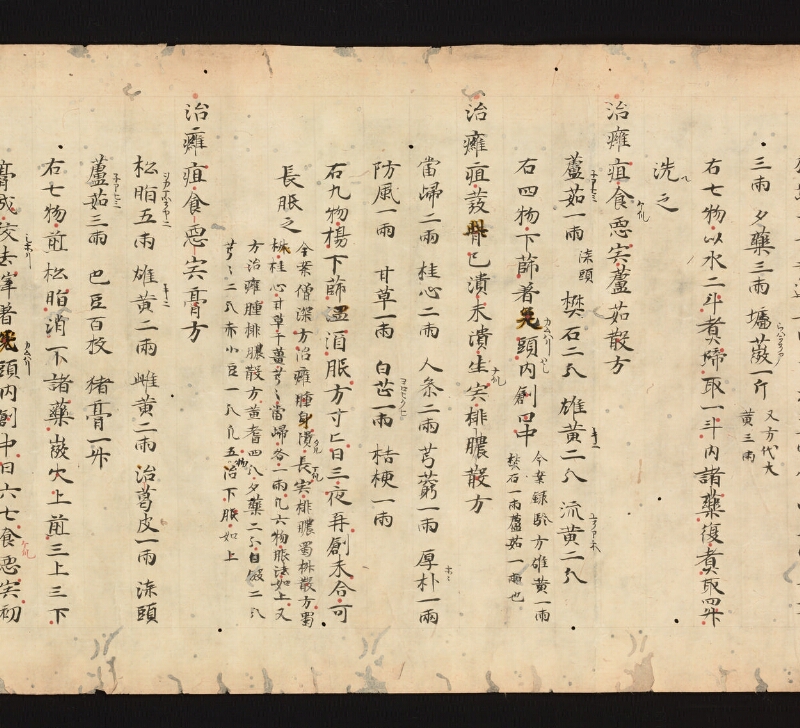 三兩 夕藥三兩 墟葭一斤 又方代大
黃三兩
右七物以水二斗煮㱕取一斗內諸藥復煮取四升
洗之
治癰疽食惡宍蘆茹散方
蘆茹一兩 漆頭 樊石二分 雄黃二分 流黃二分
右四物下篩着兎頭內創口中 今案錄驗方雄黃一兩
樊石一兩蘆茹一兩也
治癰疽發背已潰未潰生宍排膿散方
當歸二兩 桂心二兩 人条二兩 芎藭一兩 厚朴一兩
防風一兩 甘草一兩 白芷一兩 桔梗一兩
右九物搗下篩溫酒服方寸匕日三夜再創未合可
長服之 今案僧深方治癰腫身潰長宍排膿蜀椒散方蜀
椒桂心甘草干薑芎〻當歸各一兩凡六物服法如上又
方治癰腫排膿散方黃耆四分夕藥二分白蘞二分
芎〻二分赤小豆一分凡五物治下服如上
治癰疽食惡宍膏方
松脂五兩 雄黃二兩 雌黃二兩 治葛皮一兩 漆頭
蘆茹三兩 巴豆百枚 猪膏一升
右七物煎松脂消下諸藥微火上煎三上三下
膏成絞去滓着兎頭內創中日六七食惡宍初